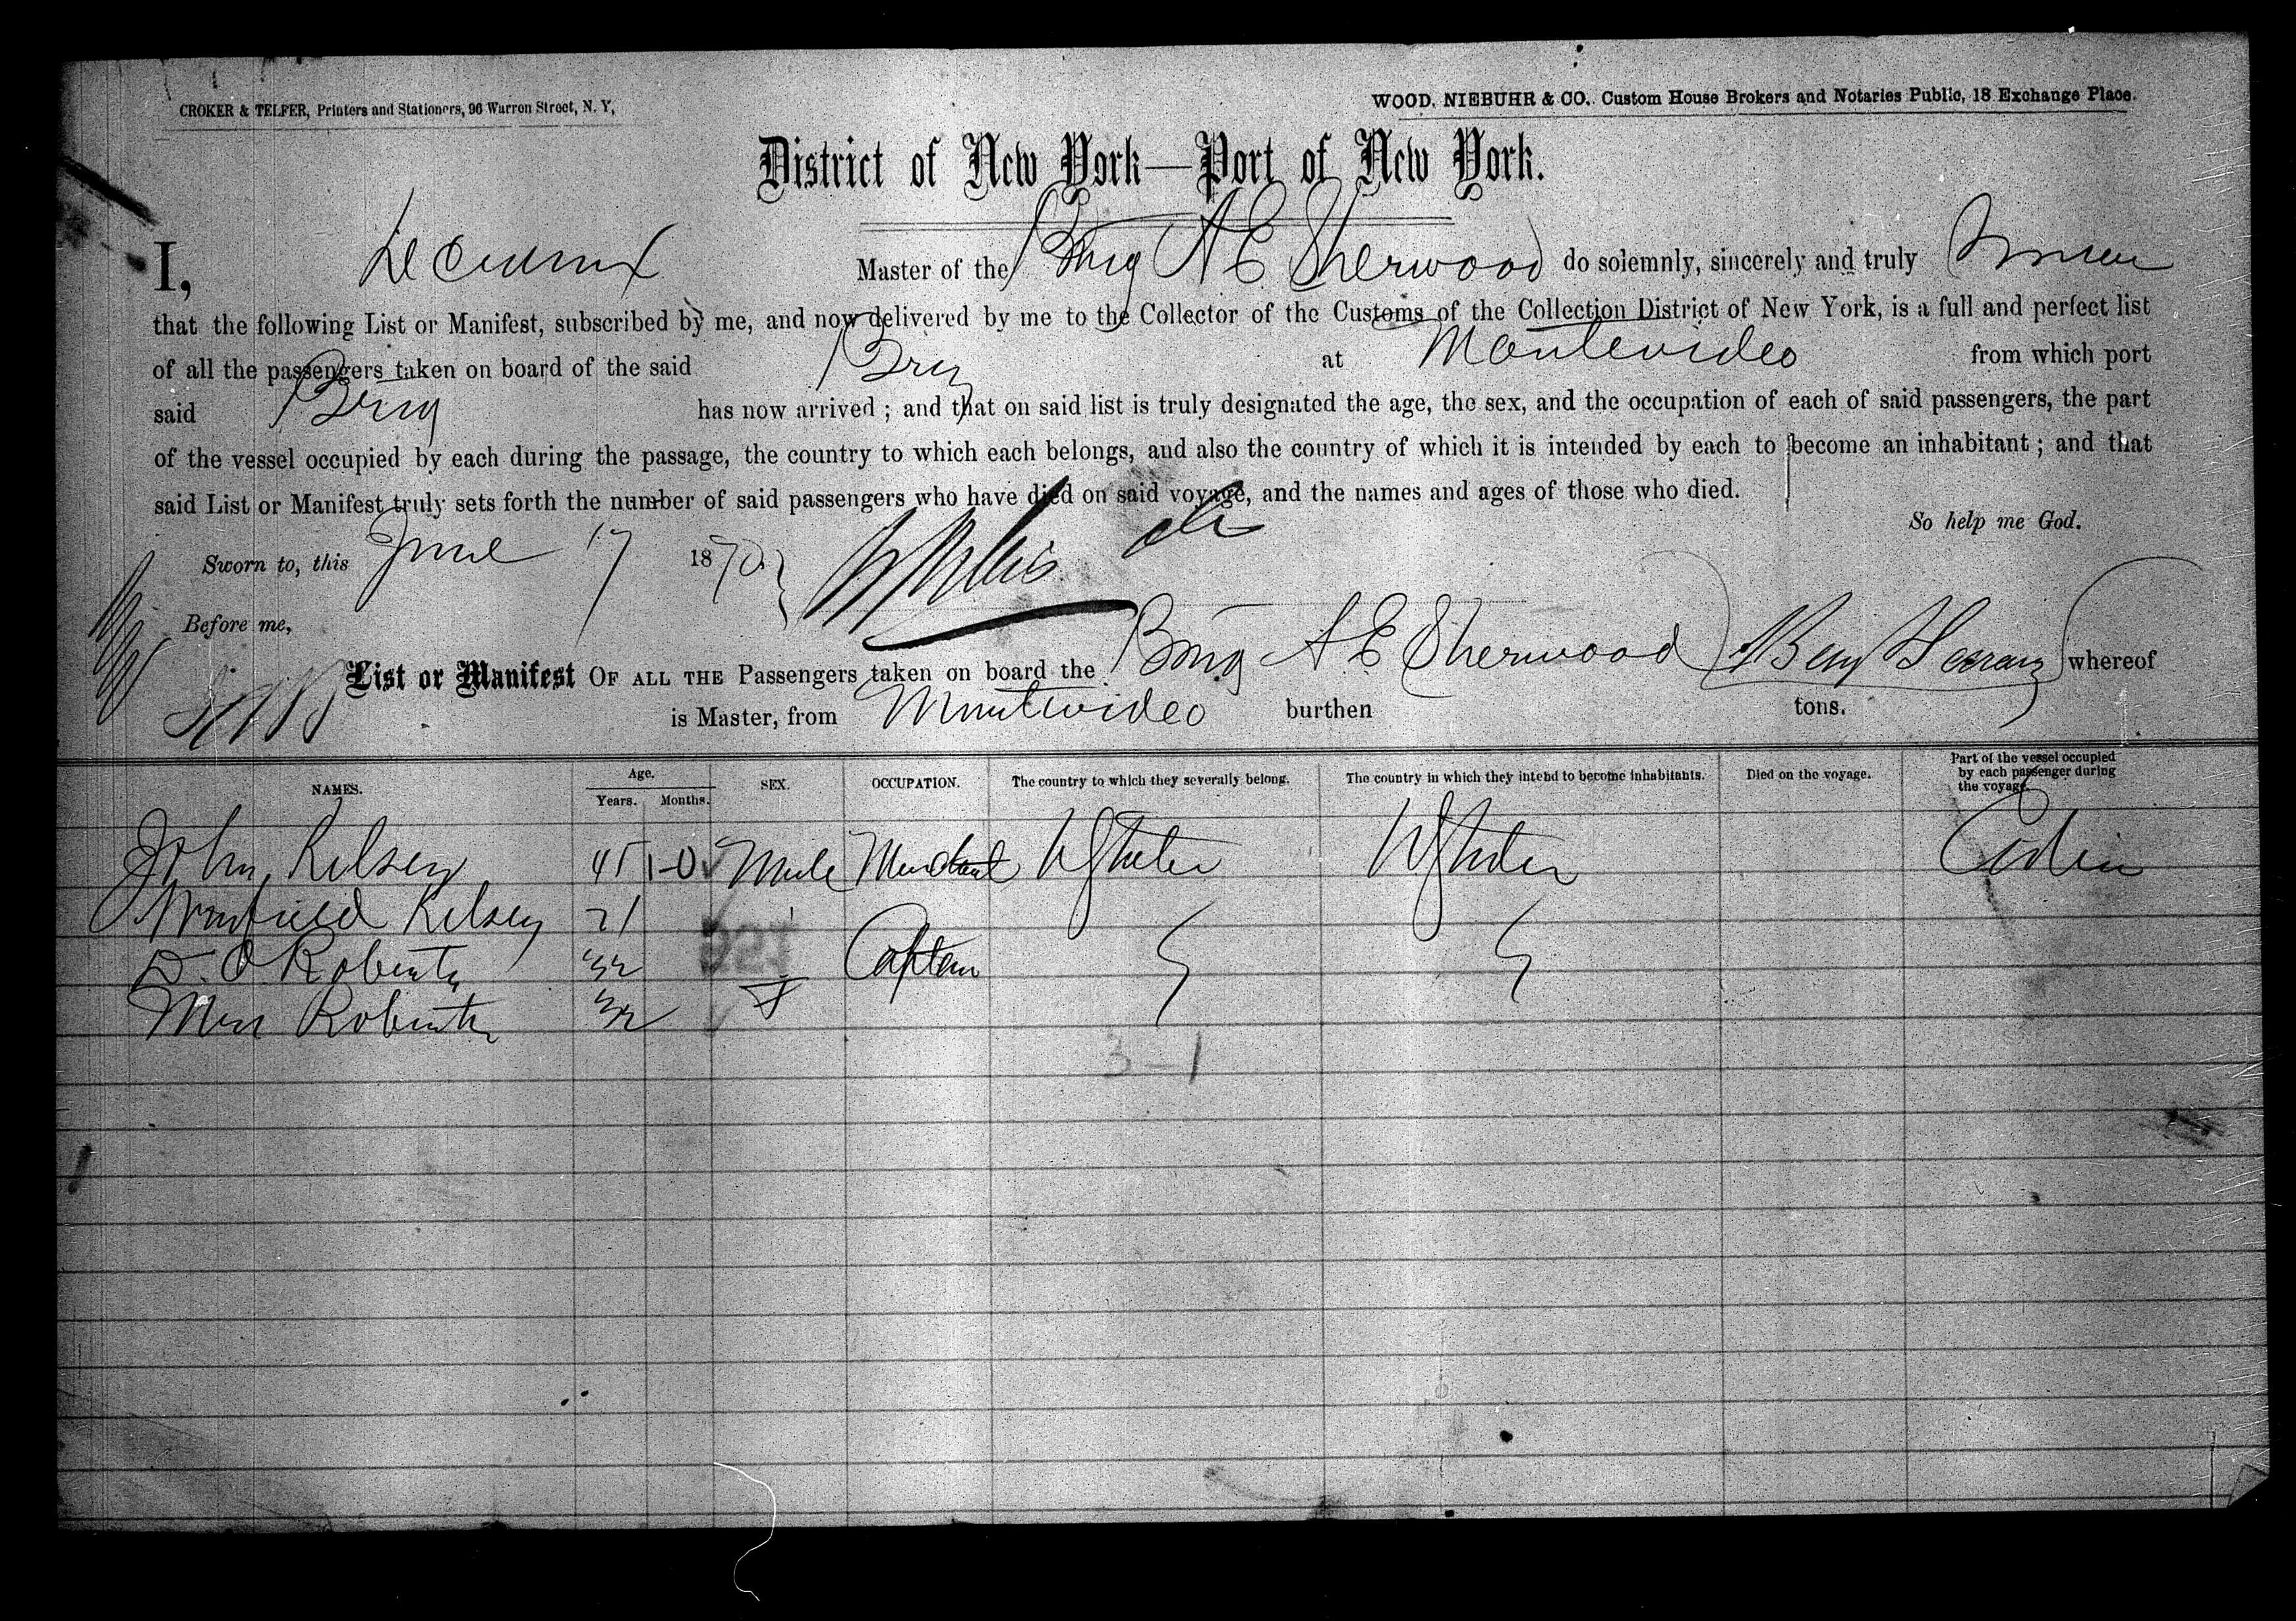 CROKER & TELFER, Printers and Stationers, 96 Warren Street, N. Y,
WOOD, NIEBUHR & CO., Custom House Brokers and Notaries Public, 18 Exchange Place.
District of New York—Port of New York.
I, Master of the Brig A E Sherwood do solemnly, sincerely and truly
that the following List or Manifest, subscribed by me, and now delivered by me to the Collector of the Customs of the Collection District of New York, is a full and perfect list
of all the passengers taken on board of the said Brig at Montevideo from which port
said Brig has now arrived ; and that on said list is truly designated the age, the sex, and the occupation of each of said passengers, the part
of the vessel occupied by each during the passage, the country to which each belongs, and also the country of which it is intended by each to become an inhabitant ; and that
said List or Manifest truly sets forth the number of said passengers who have died on said voyage, and the names and ages of those who died.
So help me God.
Sworn to, this June 17 1870
Before me,
List or Manifest OF ALL THE Passengers taken on board the Brig A E Sherwood Benj whereof
is Master, from Montevideo burthen tons.
NAMES. Age. Years. Months. SEX. OCCUPATION. The country to which they severally belong. The country in which they intend to become inhabitants. Died on the voyage. Part of the vessel occupied by each passenger during the voyage.
John Kelsey 45 Male Merchant U States U States Cabin
Winfield Kelsey 21
D. O Roberts 32 Captain
Mrs Roberts 32 F
3-1